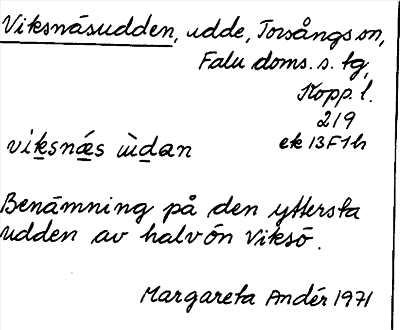 Viksnäsudden, udde, Torsångs sn,
Falu doms. s. tg,
Kopp. l.
219
ek 13F1h
viksnæs ùdan
Benämning på den yttersta
udden av halvön Viksö.
Margareta Andér 1971